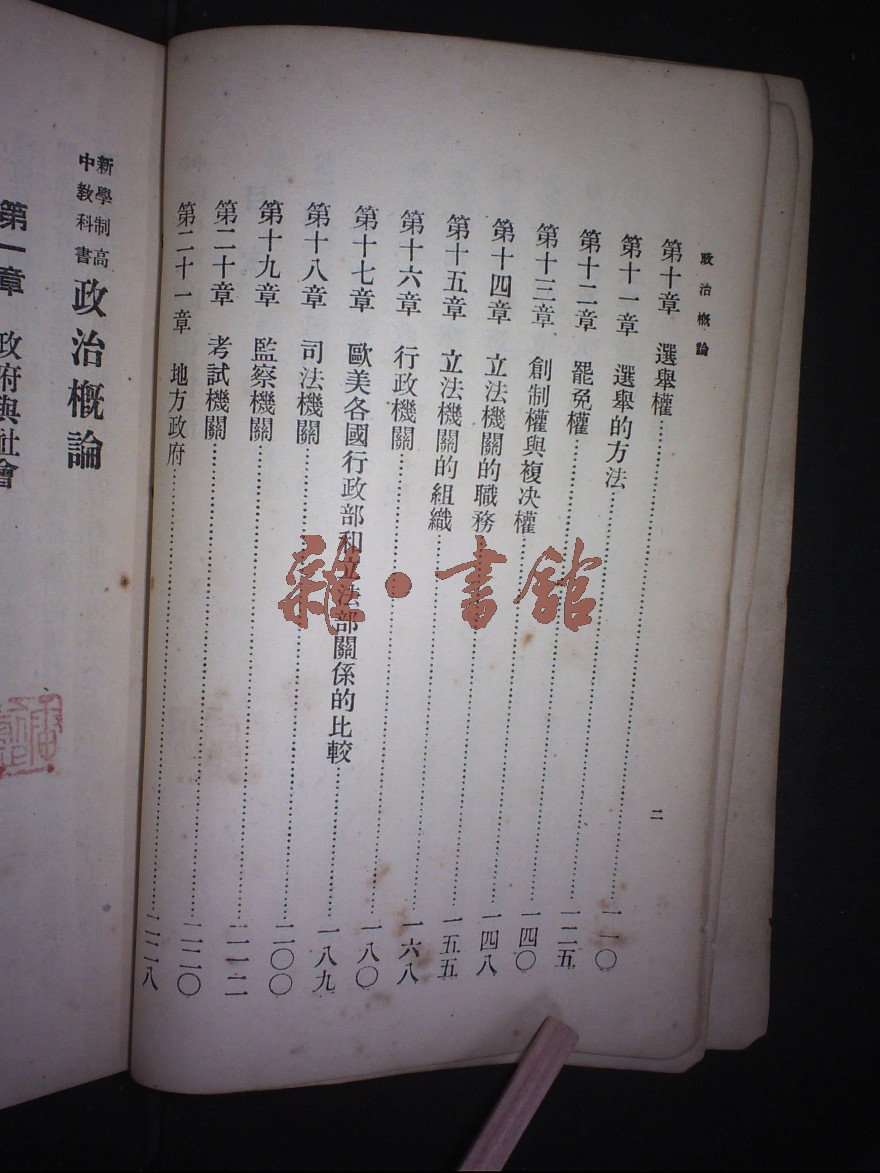 政治概論
二
第十章　選舉權……一一〇
第十一章　選舉的方法……一二五
第十二章　罷免權……一四〇
第十三章　創制權與複決權……一四八
第十四章　立法機關的職務……一五五
第十五章　立法機關的組織……一六八
第十六章　行政機關……一八〇
第十七章　歐美各國行政部和立法部關係的比較……一八九
第十八章　司法機關……二〇〇
第十九章　監察機關……二一二
第二十章　考試機關……二二〇
第二十一章　地方政府……二二八
新學制高
中教科書
政治概論
第一章　政府與社會
雜·書館